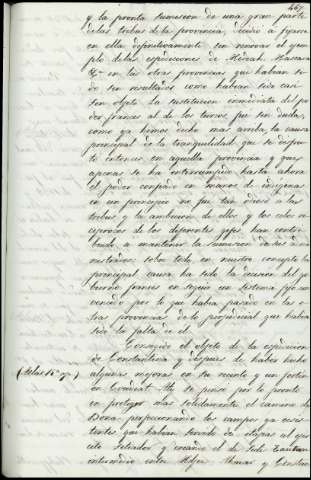 467
y la pronta sumision de una gran parte
de las tribus de la provincia, decidió á fijarse
en ella definitivamente sin renovar el ejem
plo de las espediciones de Mascara
&ª en las otras provincias que habian si
do sin resultados como habian sido casi
sin objeto. La sustitucion inmediata del po
der frances al de los turcos fué sin duda,
como ya hemos dicho mas arriba, la causa
principal de la tranquilidad que se disfru
ta entonces en aquella provincia y que
apenas se ha interrumpido hasta ahora
el poder confiado en manos de indigenas
en un principio no fue tan odioso á las
tribus y la ambicion de ellos y los celos re
ciprocos de los diferentes gefes, han contri
buido á mantener la sumision de sus admi
nistrados: sobre todo en nuestro concepto la
principal causa ha sido la decision del go
bierno frances en seguir un sistema fijo con
vencido por lo que habia pasado en las o
tras provincias de lo perjudicial que habia
sido la falta de el.
Conseguido el objeto de la espedicion
de Constantina y despues de haber hecho
algunas mejoras en su recinto y un fortin
en se pensó por lo pronto
en proteger mas solidamente el camino de
Bona, perfeccionando los campos ya exis
tentes que habian servido de etapas al ejer
cito sitiador y creando el de
intermedio entre y Constan